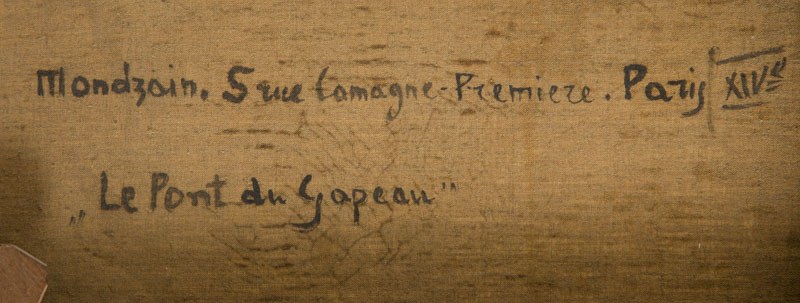 Mondzain. 5 rue Camagne-Premiere. Paris XIVe
„Le Pont du Gapeau"